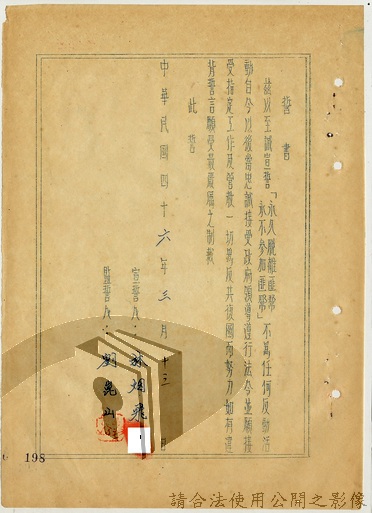 誓書
茲以至誠宣誓「永久脫離匪幫 永不參加匪幫」不為任何反動活
動自今以後當忠誠接受政府領導遵行法令並願接
受指定工作及管教一切為反共復國而努力如有違
背誓言願受最嚴厲之制裁
此誓
中華民國四十六年三月十三日
宣誓人：
監誓人：劉崑山
198
請合法使用公開之影像